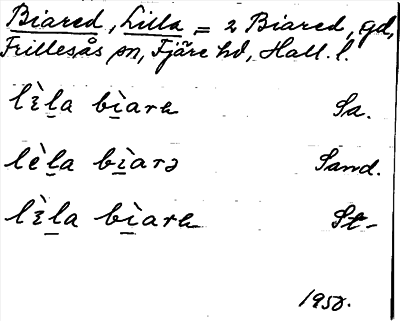 Biared, Lilla = 2 Biared, gd,
Frillesås sn, Fjäre hd, Hall. l.
lɛ̀la bìara Sa.
lèla bìarə Sand.
lɛ̀la bìara St-